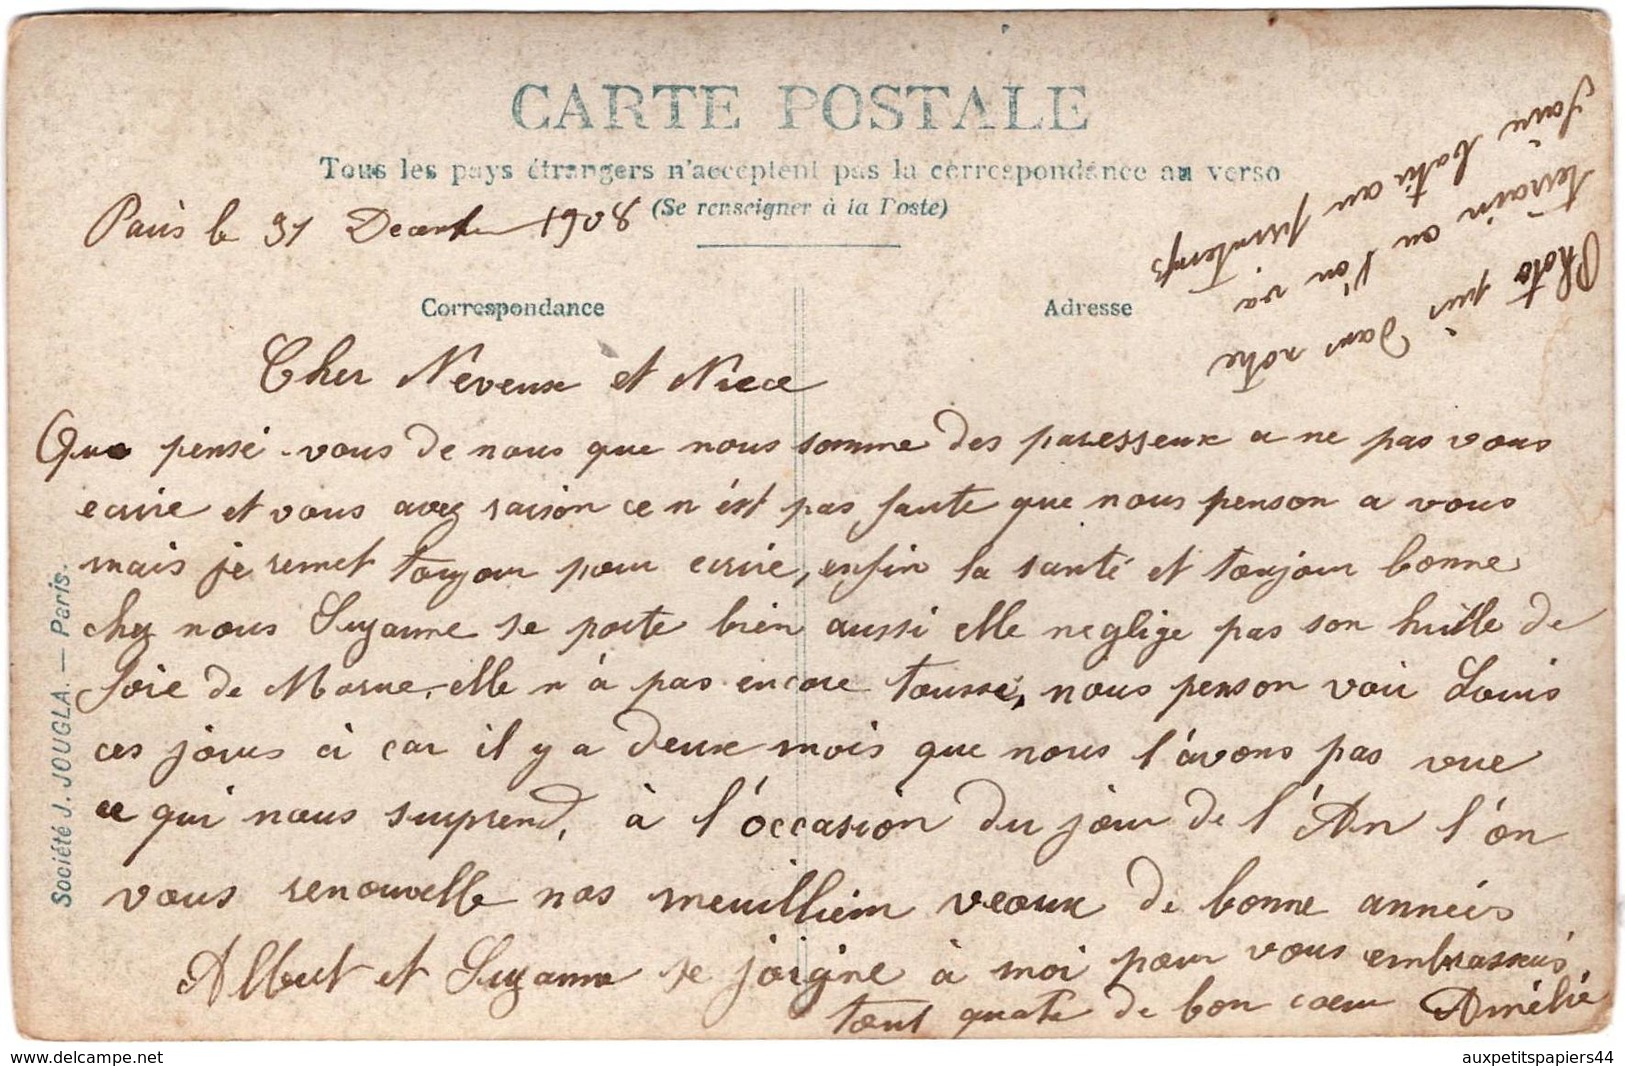 CARTE POSTALE
Tous les pays étrangers n'acceptent pas la correspondance au verso
(Se renseigner à la Poste)
Paris le 31 Decembre 1908
Correspondance
Adresse
Photo pris dans notre
terrain ou l'on va
faire batir au printemps
Cher Neveux et Niece
Que pensé-vous de nous que nous somme des paresseux a ne pas vous
ecrire et vous avez raison ce n'ést pas faute que nous penson a vous
mais je remet toujour pour ecrire, enfin la santé et toujour bonne
chez nous Suzanne se porte bien aussi elle neglige pas son huille de
foie de Morue, elle n'à pas encore toussé, nous penson voir Louis
ces jours ci car il y a deux mois que nous l'avons pas vue
ce qui nous surprend, à l'occasion du jour de l'An l'on
vous renouvelle nos meuilliem veaux de bonne années
Albert et Suzanne se joigne à moi pour vous embrassés
tout quatre de bon coeur Amélie
Société J. JOUGLA. — Paris.
auxpetitspapiers44
www.delcampe.net